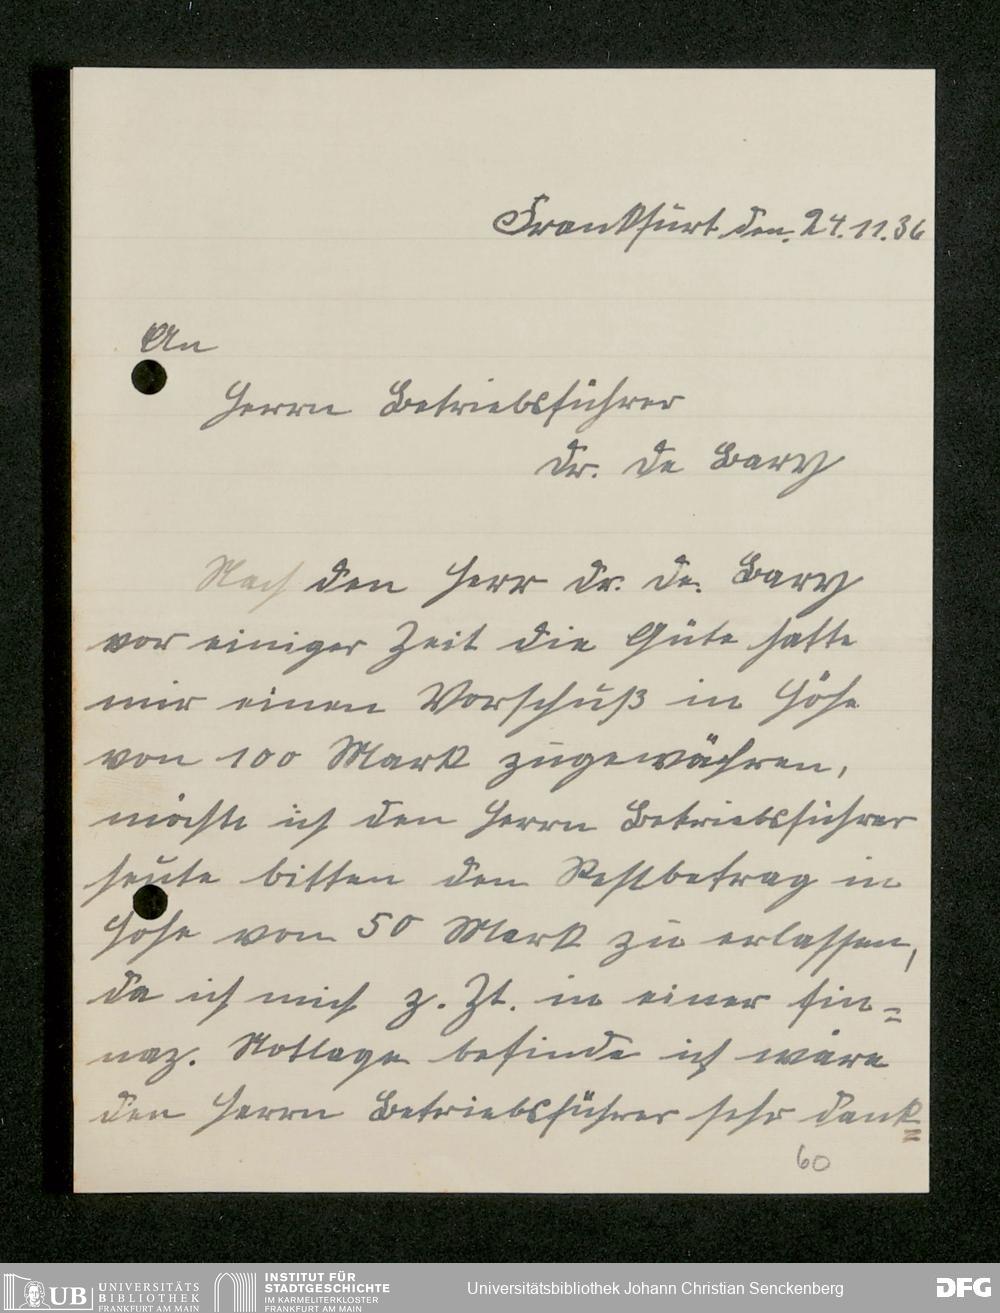 Frankfurt den. 24.11.36
An
Herrn Betriebsführer
Dr. de Bary
Nach den Herr Dr. de. Bary
vor einiger Zeit die Güte hatte
mir einen Vorschuß in Höhe
von 100 Mark zugewähren,
möchte ich den Herrn Betriebsführer
heute bitten den Restbetrag in
Höhe von 50 Mark zu erlassen,
da ich mich z. Zt. in einer fin=
naz. Notlage befinde ich wäre
den Herrn Betriebsführer sehr dank=
60
UB UNIVERSITÄTS
BIBLIOTHEK
FRANKFURT AM MAIN
INSTITUT FÜR
STADTGESCHICHTE
IM KARMELITERKLOSTER
FRANKFURT AM MAIN
Universitätsbibliothek Johann Christian Senckenberg
DFG